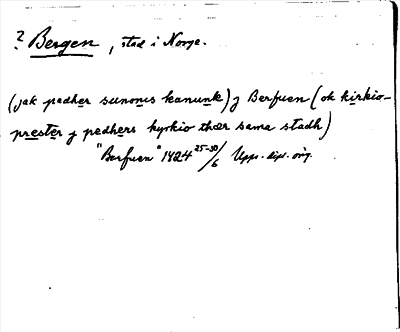 ? Bergen, stad i Norge.
(jak pædher sunonis kanunk) j Berfuen (ok kirkio-
prester j pedhers kyrkio thær sama stadh)
"Berfuen" 1424 25-30/6 Upps. dipl. orig.